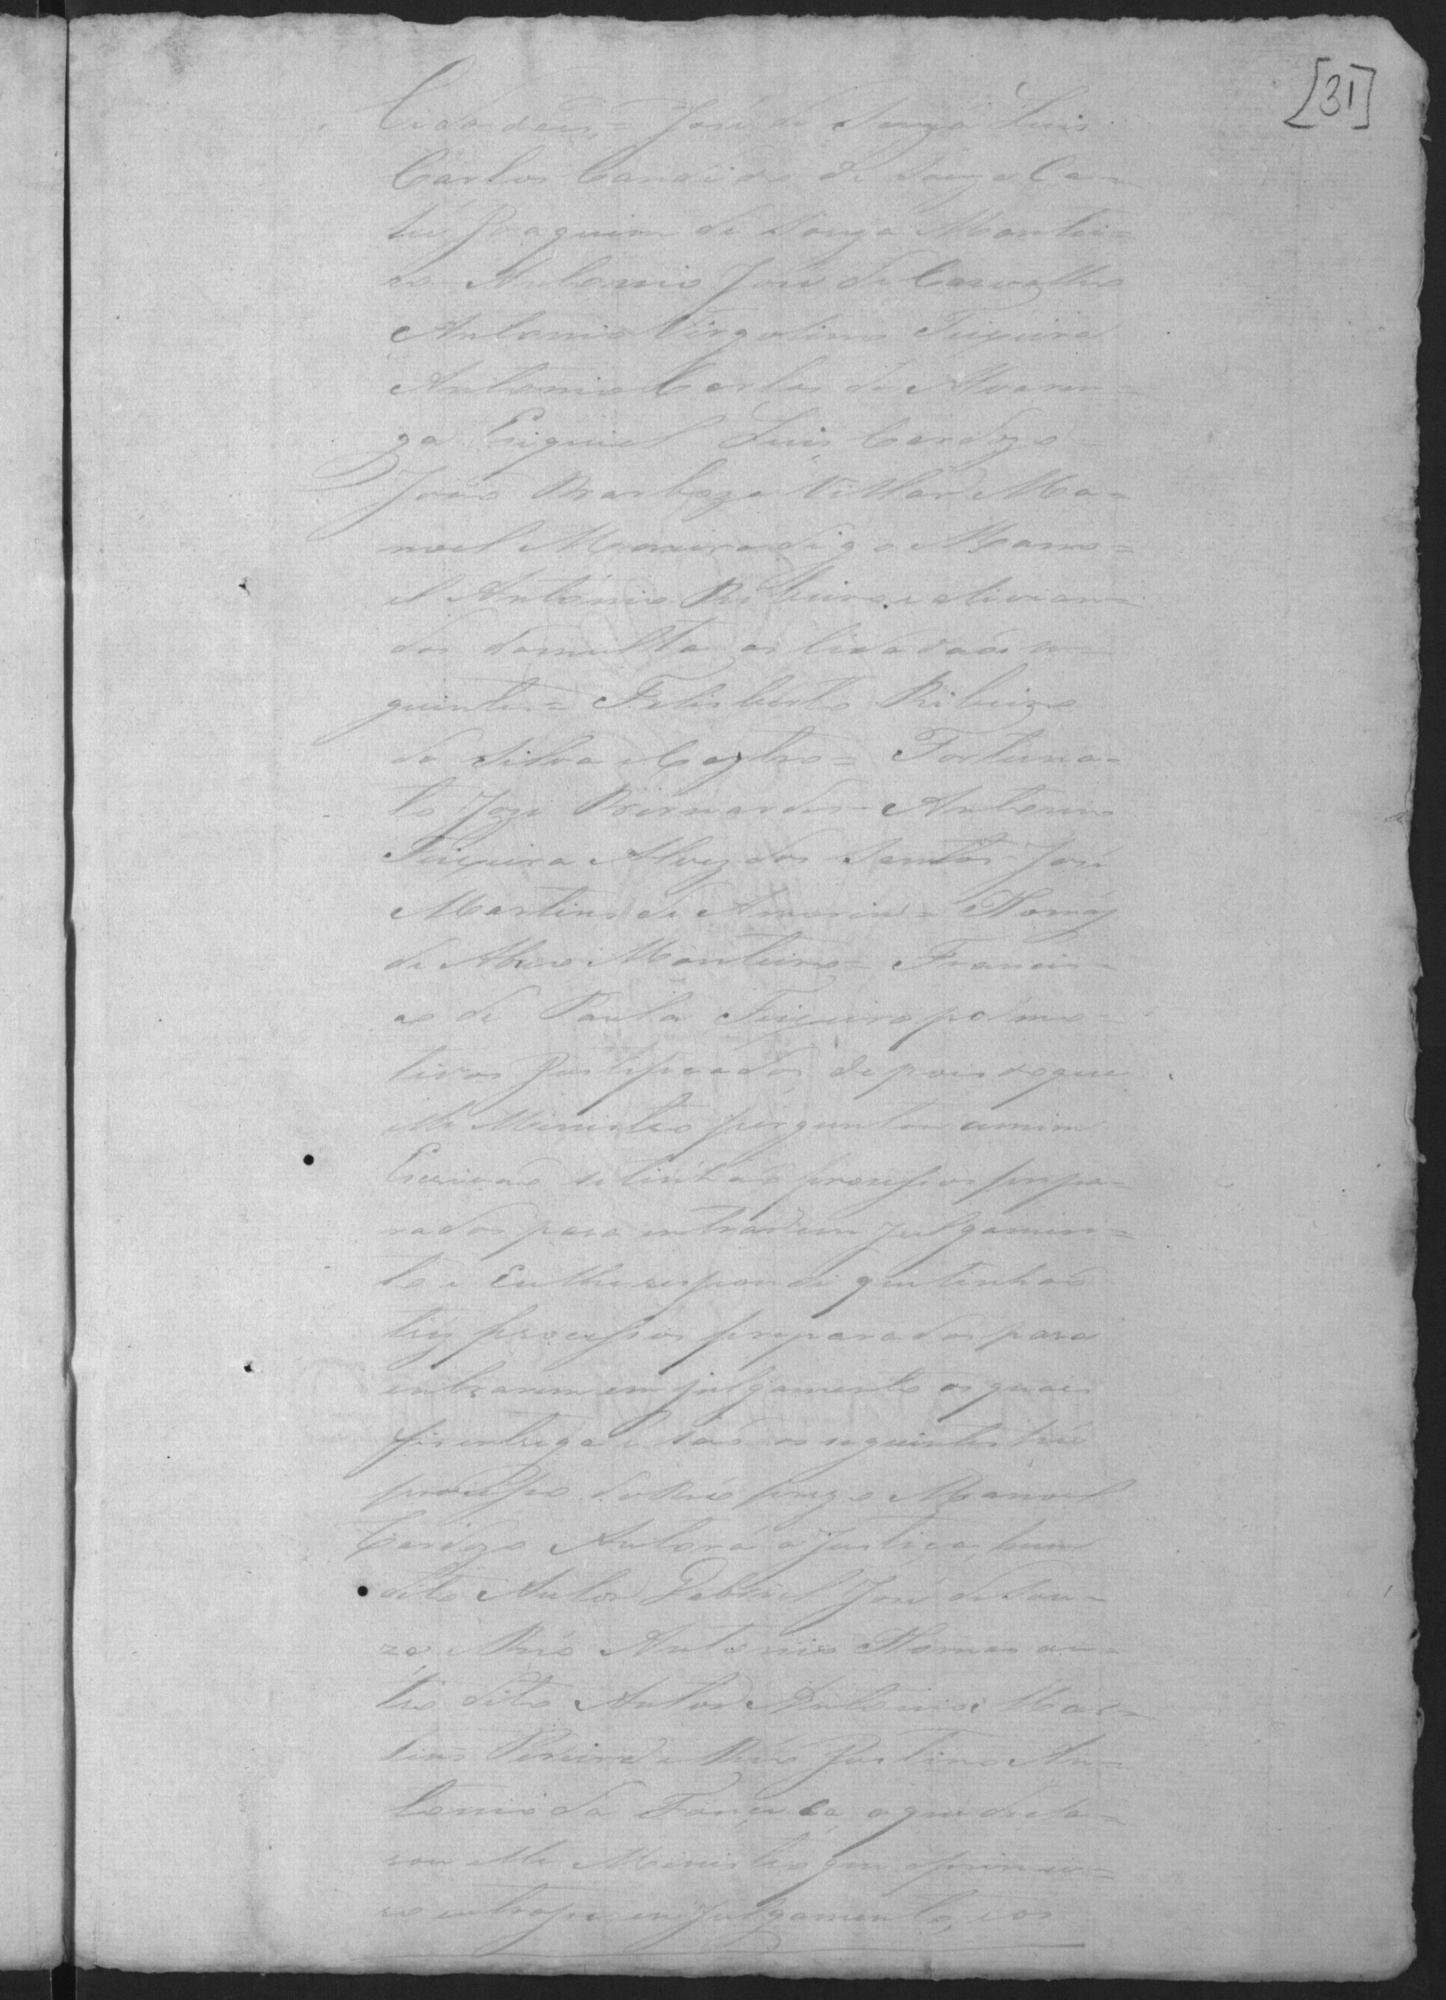 [31]
Cidadãos = José de Souza Luis
Carlos Candido de Souza Ca-
Joaquim de Souza Montei=
ro Antonio José de Carvalho
Antonio Virgolino Teixeira
Antonio Carlos de Alvaren-
ga Luis Cardozo
João Barboza Villar Ma=
noel Moreira digo Mano=
el Antonio Ribeiro e alivian-
dos da multa os Cidadãos se-
guintes = Felisberto Ribeiro
da Silva e Castro = Fortuna-
to José Bernardes = Antonio
Teixeira Alvez dos Santos José
Martins de Amorim = Thomaz
de Abreo Monteiro = Francis-
co de Paula Teixeira por mo-
tivos Justificados, depois do que
elle Ministro perguntou a mim
Escrivão se tinhão processos prepa-
rados para entrar em julgamen=
to e Eu lhe respondi que tinhão
trez processos preparados para
entrarem em julgamento os quaes
fis entrega e são os seguintes
processo do Reo prezo Manoel
Cardozo Autora a Justiça, hum
dito Autor Gabriel José de Sou-
za Reo Antonio Thomas ou-
tro dito Autor Antonio Mar-
tins Pereira e Reo Justino An-
tonio da o que decla-
rou elle Ministro que o primei-
ro entrasse em julgamento, e os